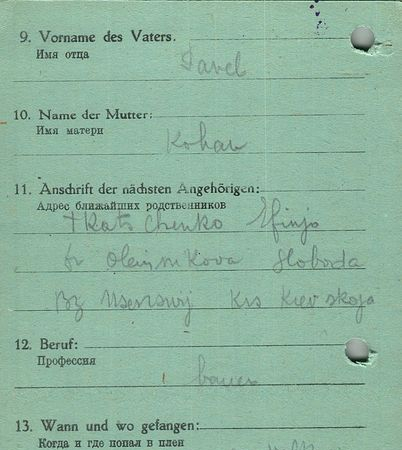 9. Vorname des Vaters.
Имя отца
Pavel
10. Name der Mutter:
Имя матери
Kohan
11. Anschrift der nächsten Angehörigen:
Адрес ближайших родственников
Tkatschenko Efinja
Oleinikova Sloboda
Kievskoja
12. Beruf:
Профессия
bauer
13. Wann und wo gefangen:
Когда и где попал в плен